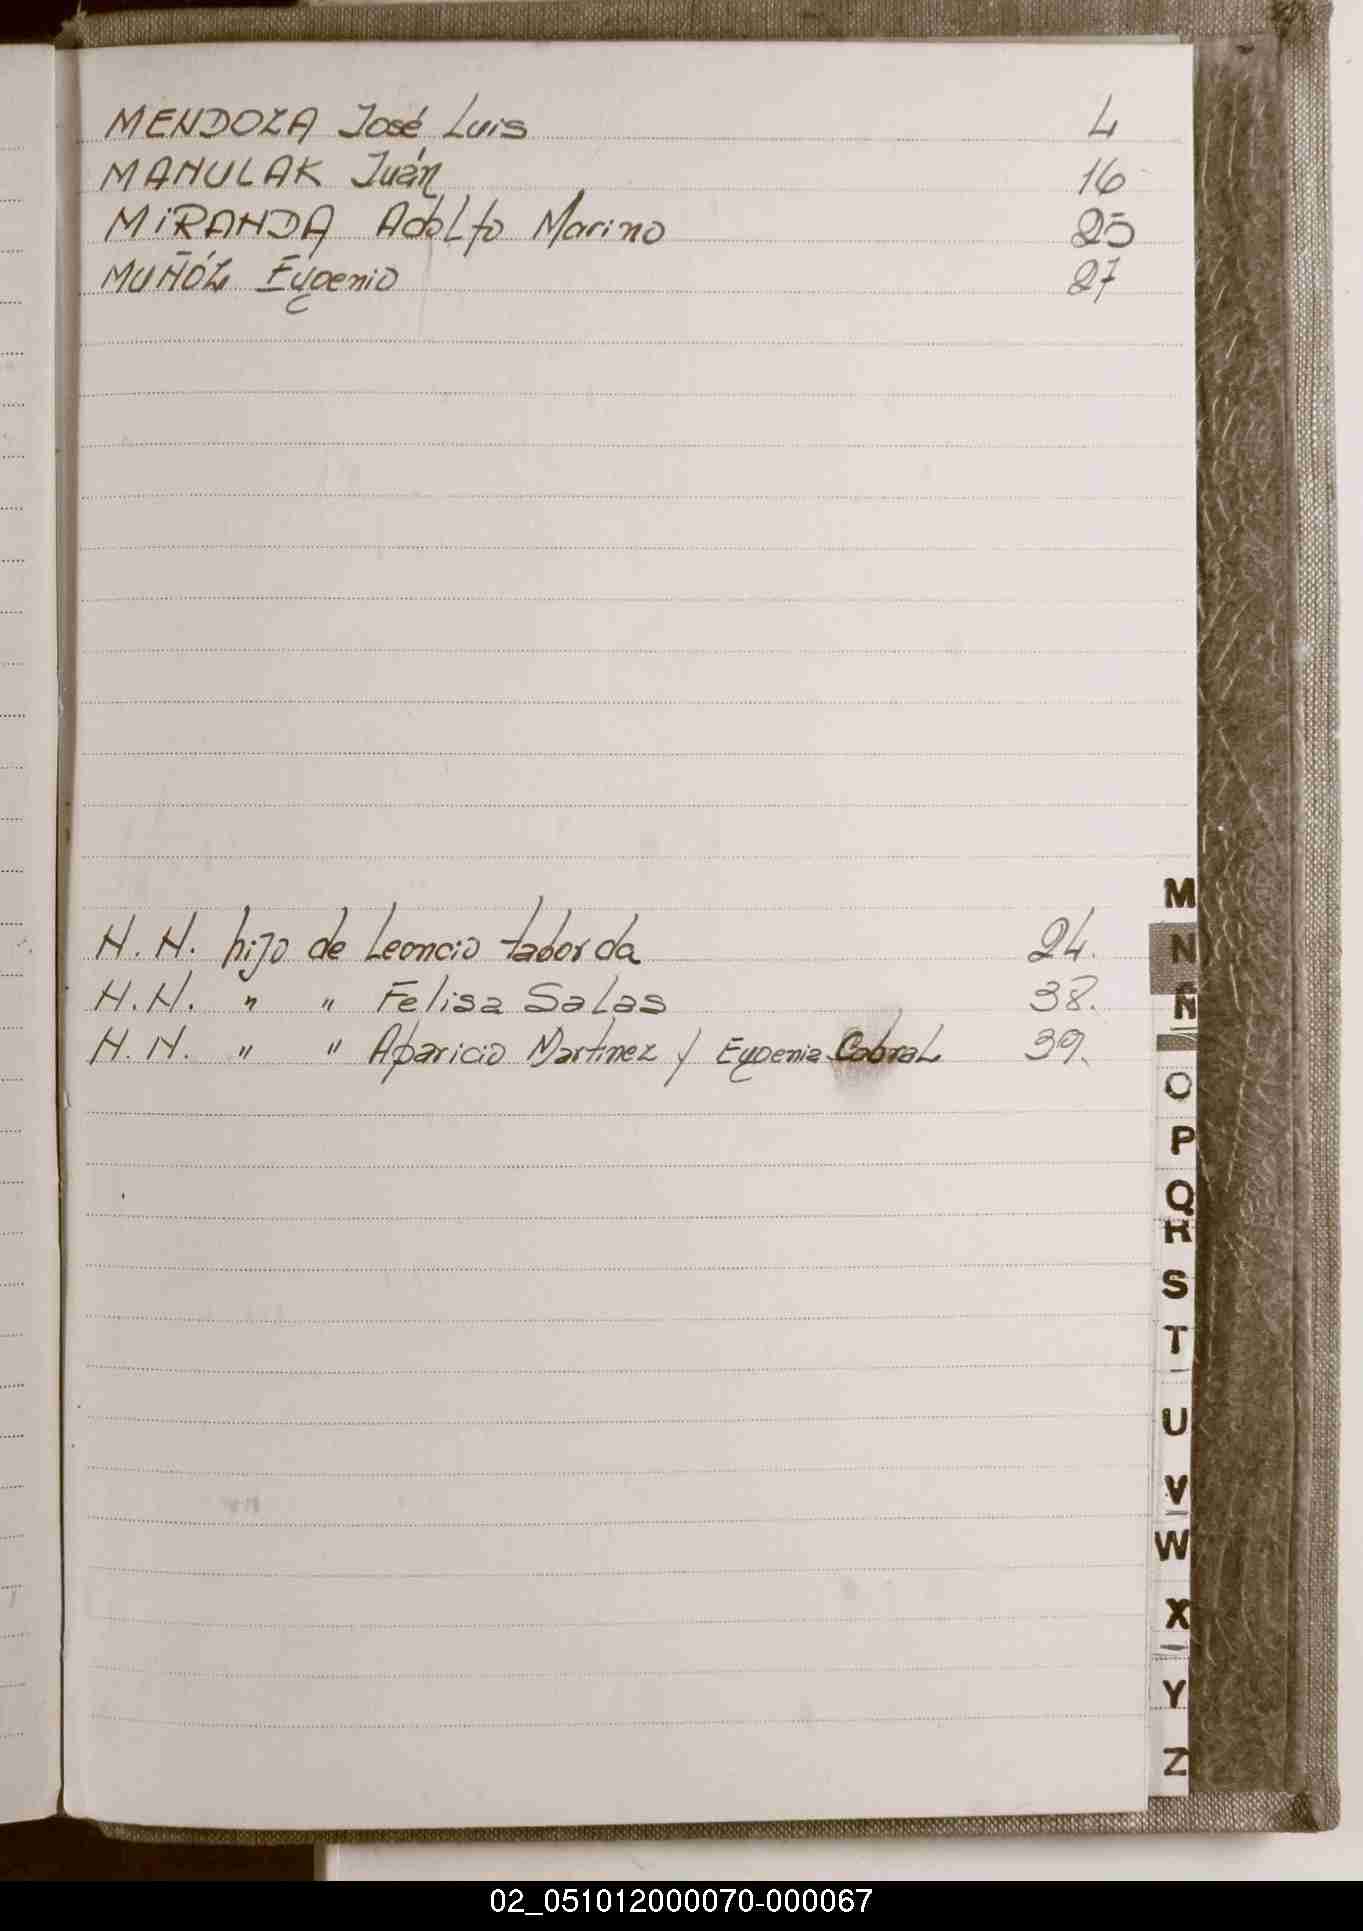 MENDOZA José Luis 4
MANULAK Juán 16
MiRANDA Adolfo Marino 25
MUÑÓZ Eugenio 27
N. N. hijo de Leoncio taborda 24.
N. N. " " Felisa Salas 38.
N. N. " " Aparicio Martinez y Eugenia Cabral 39.
M
N
Ñ
O
P
Q
R
S
T
U
V
W
X
Y
Z
02_051012000070-000067